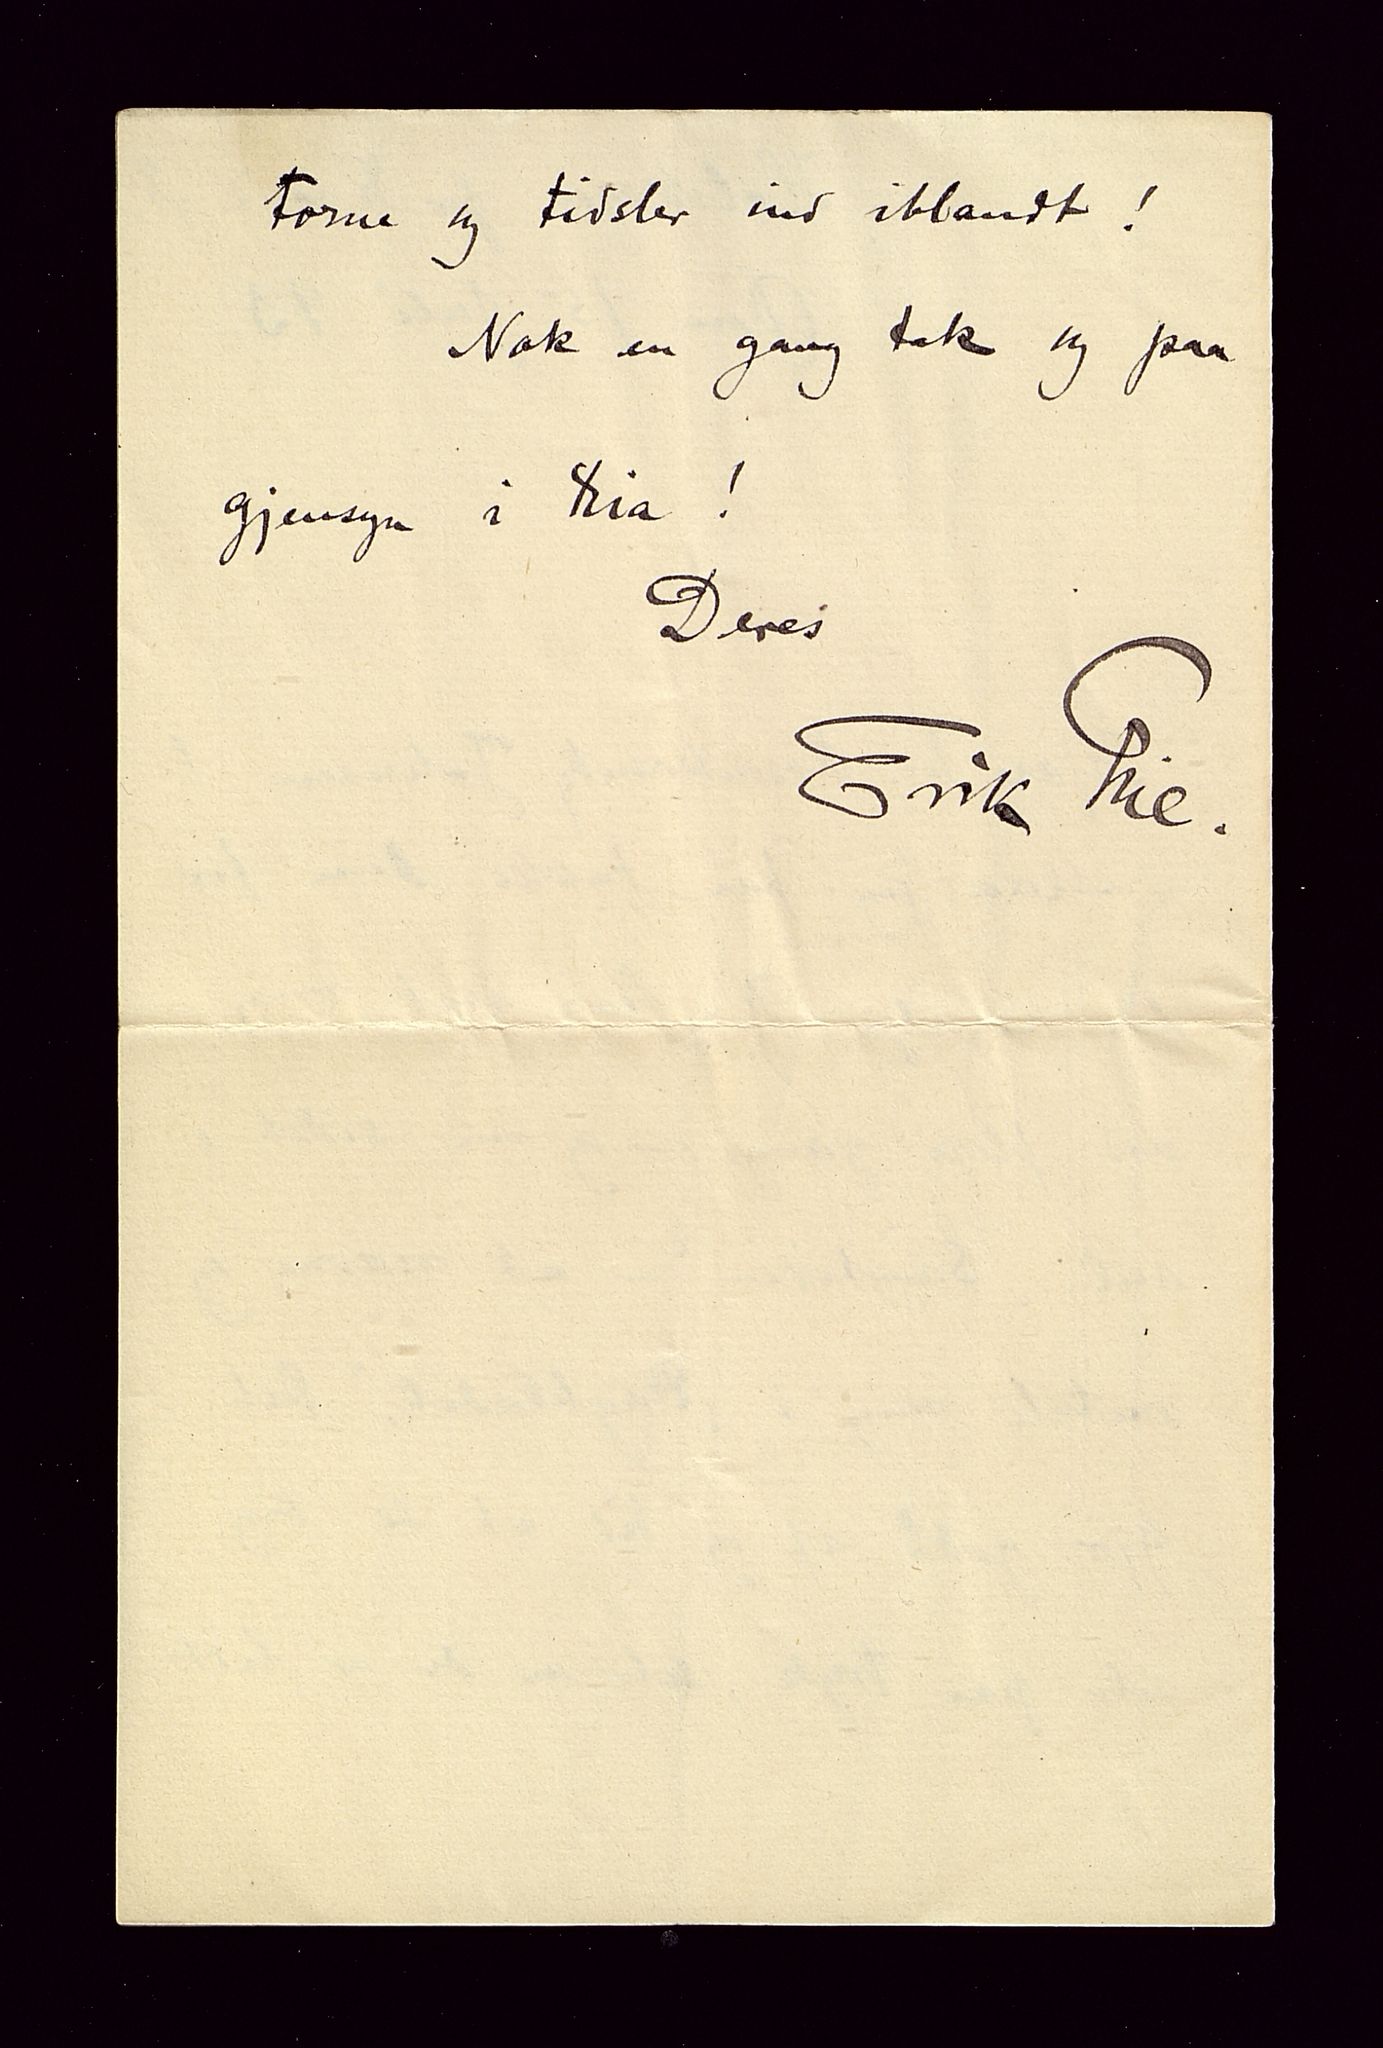 torne og tidsler ind iblandt!
Nok en gang tak og paa
gjensyn i Kria!
Deres
Erik Lie.